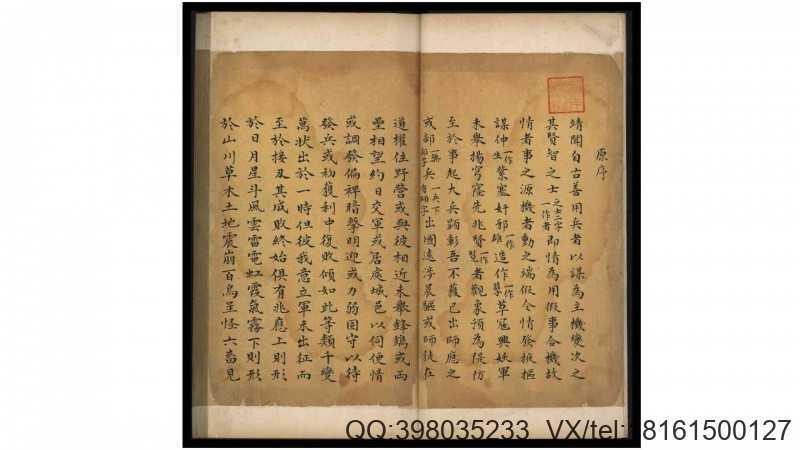 原序
靖聞自古善用兵者以謀為主機變次之
其賢智之士之士二字一作者即情為用假事合機故
情者事之源機者動之端假令情發樞
謀仲一作生縈塞奸邪一作雄造作一作孽草寇興妖軍
未舉揚穹窿先兆賢一作覽者觀象預為隄防
至於事起大兵顕彰吾不獲已出師應之
或部兵出國遠涉晨驅或師徒在
道權住野營或與彼相近未舉鋒鏑或兩
壘相望約日交軍或居處城邑以伺便情
或調發偏裨暗擊明迎或力弱固守以待
發兵或初獲利中復敗傾如此等類千變
萬狀出於一時但彼我意立軍未出征而
至於接刃其成敗終始俱有兆應上則形
於日月星斗風雲雷電虹霞氣霧下則形
於山川草木土地震崩百鳥呈怪六畜見
QQ:398035233 VX/tel:18161500127